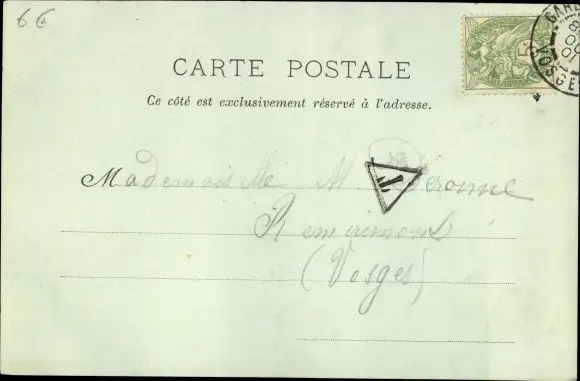 6 €
GARE
VOSGES
5
CARTE POSTALE
Ce côté est exclusivement réservé à l'adresse.
T
Mademoiselle M
Remiremont
(Vosges)